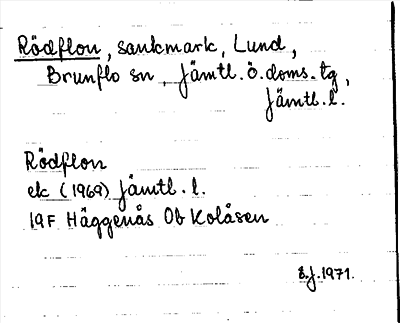 Rödflon, sankmark, Lund,
Brunflo sn, Jämtl. ö. doms. tg,
Jämtl. l.
Rödflon
ek (1969) Jämtl. l.
19F Häggenås Ob Kolåsen
E.J. 1971.